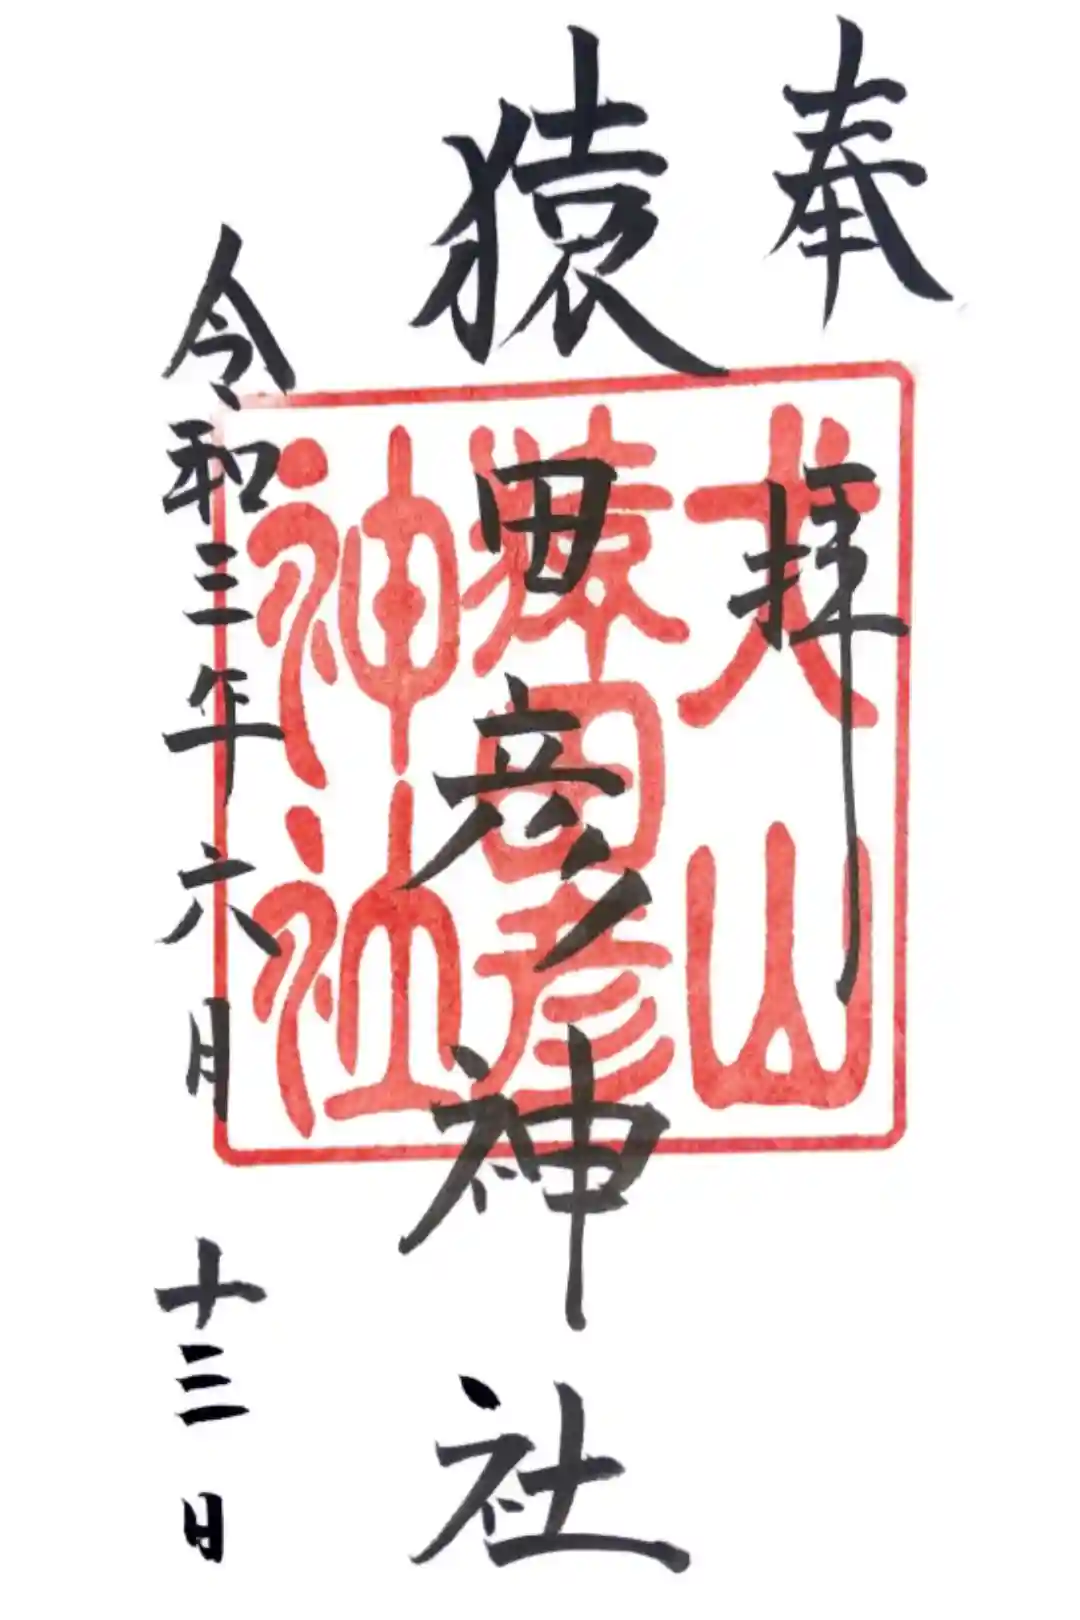 奉拝
犬山
猿田彦神社
猿田彦
神社
令和三年六月十三日